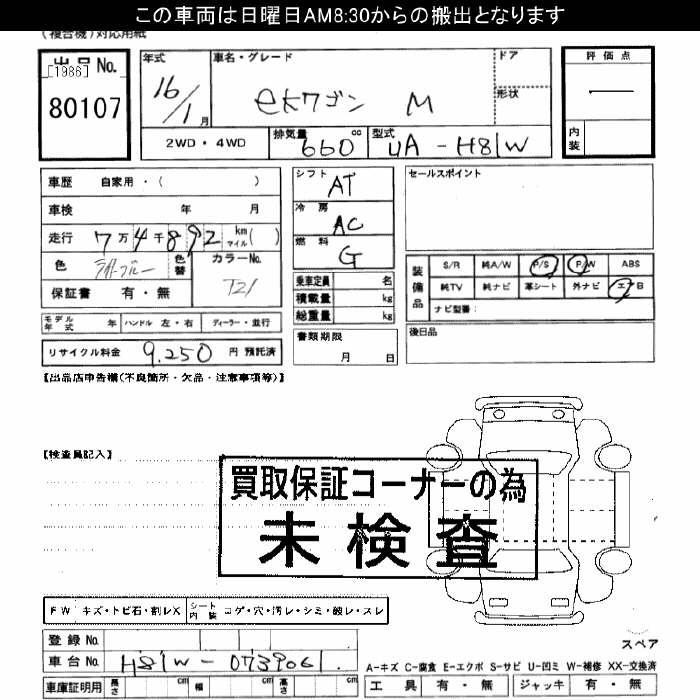 この車両は日曜日AM8:30からの搬出となります
(複合機)対応用紙
出品 No.
[1986]
80107
年式
16/1月
車名・グレード
eKワゴン M
ドア
形状
評価点
内装
2WD・4WD
排気量 660 cc
型式 UA-H81W
車歴 自家用・( )
車検 年 月
走行 7万4千892 km マイル( )
色 ライトブルー 色替 カラーNo. T21
保証書 有・無
シフト AT
冷房 AC
燃料 G
乗車定員 名
積載量 kg
総重量 kg
セールスポイント
装備品
S/R 純A/W P/S P/W ABS
純TV 純ナビ 革シート 外ナビ エアB
ナビ型番:
モデル年式 年 ハンドル 左・右 ディーラー・並行
リサイクル料金 9,250 円 預託済
書類期限
月 日
後日品
【出品店申告欄(不良箇所・欠品・注意事項等)】
【検査員記入】
買取保証コーナーの為
未検査
FW キズ・トビ石・割レX シート内装 コゲ・穴・汚レ・シミ・破レ・スレ
登録 No.
車台 No. H81W-0739061
車庫証明用 長さ cm 幅 cm 高さ cm
スペア
A-キズ C-腐食 E-エクボ S-サビ U-凹ミ W-補修 XX-交換済
工具 有・無 ジャッキ 有・無